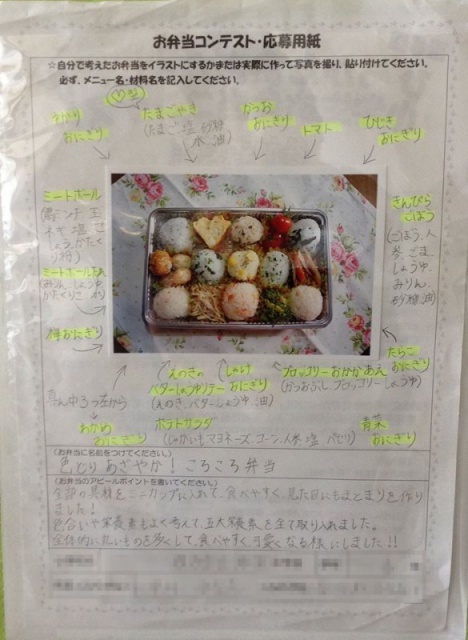 お弁当コンテスト・応募用紙
☆自分で考えたお弁当をイラストにするかまたは実際に作って写真を撮り、貼り付けてください。
必ず、メニュー名・材料名を記入してください。
おにぎり
たまごやき
(たまご、塩、砂糖
水、油)
かつお
おにぎり
トマト
ひじき
おにぎり
ミートボール
ミートボールあん
梅おにぎり
きんぴら
ごぼう
(ごぼう、人
参、ごま、
しょうゆ
みりん
砂糖、油)
たらこ
おにぎり
えのきの
バターしょうゆソテー
(えのき、バター、しょうゆ、油)
しゃけ
おにぎり
ブロッコリーおかかあん
(かつおぶし、ブロッコリー、しょうゆ)
わかめ
おにぎり
ポテトサラダ
(じゃがいも、マヨネーズ、コーン、人参、塩、パセリ)
青菜
おにぎり
(お弁当に名前をつけてください。)
色どりあざやか！ころころ弁当
(お弁当のアピールポイントを書いてください。)
全部の具材をミニカップに入れて、食べやすく、見た目にもまとまりを作り
ました！
色合いや栄養素もよく考えて、五大栄養素を全て取り入れました。
全体的に丸いものを多くして、食べやすく可愛くなる様にしました!!